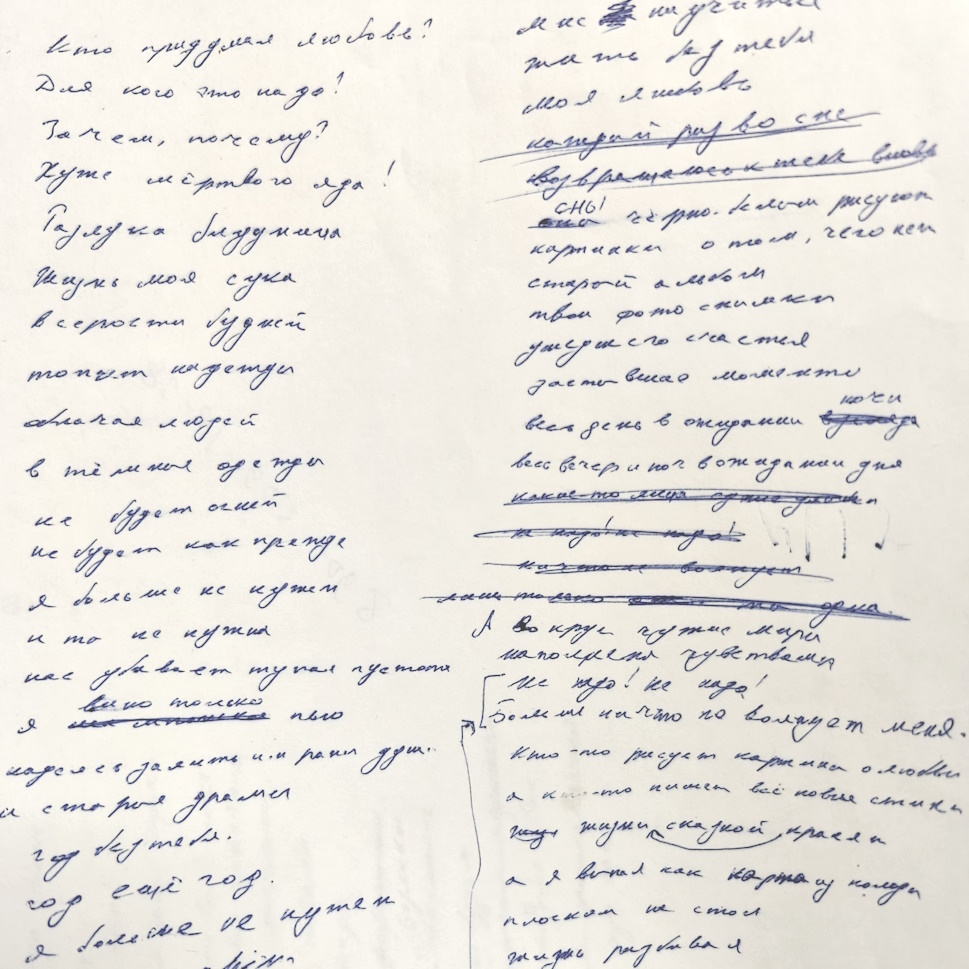 Кто придумал любовь?
Для кого это надо!
Зачем, почему?
Хуже мёртвого яда!
Разлука блудница
Жизнь моя сука
в серости будней
топит надежды
облачая людей
в тёмные одежды
не будет огней
не будет как прежде
я больше не нужен
и ты не нужна
нас убивает тупая пустота
я вино только пью
надеясь залить им раны душ..
и старые драмы
год без тебя.
год ещё год.
я больше не нужен
мне научиться
жить без тебя
моя любовь
каждый раз во сне
возвращаюсь к тебе вновь
сны чёрно-белым рисуют
картинки о том, чего нет
старый альбом
твои фото снимки
ушедшего счастья
застывшие моменты
весь день в ожидании ночи
весь вечер и ноч в ожидании дня
какие-то лица
не надо! не надо!
ничто не волнует
лишь только ты одна.
А вокруг чужие миры
наполненя чувствами
не надо! не надо!
Больше ничто не волнует меня.
Кто-то рисует картинки о любви
а кто-то пишет всё новые стихи
жизни сказкой крася
а я выпал как карта из колоды
плоском на стол
жизнь разбивая